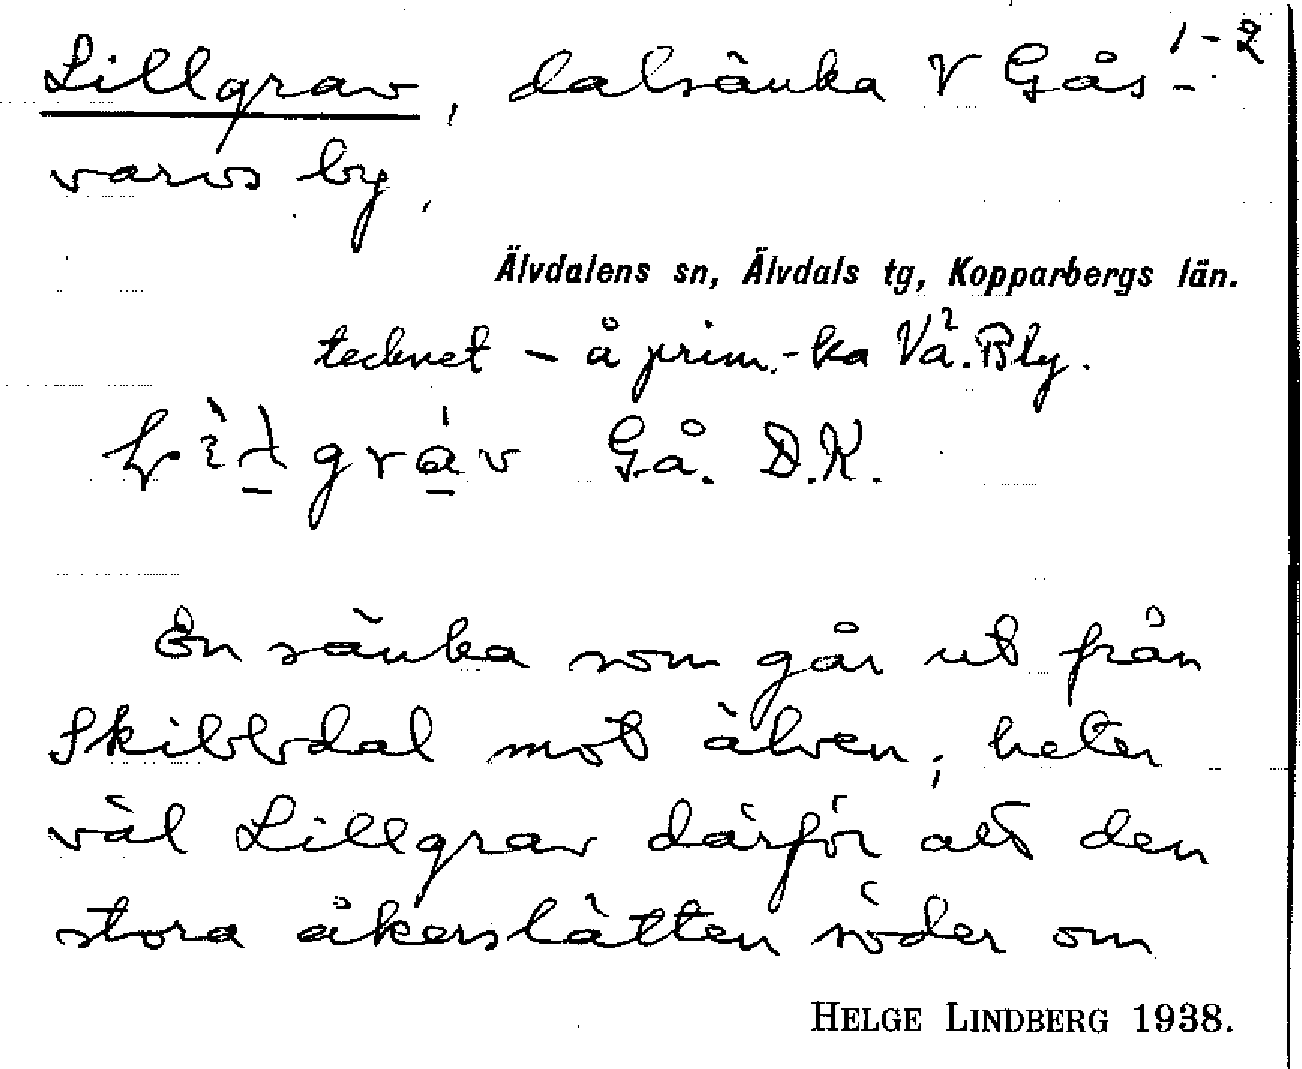 1-2
Lillgrav, dalsänka V Gås-
varvs by,
Älvdalens sn, Älvdals tg, Kopparbergs län.
tecknet – å prim.-ka Vå. Bly.
Gå. D.K.
En sänka som går ut från
Skibbdal mot älven, heter
väl Lillgrav därför att den
stora åkerslätten söder om
HELGE LINDBERG 1938.